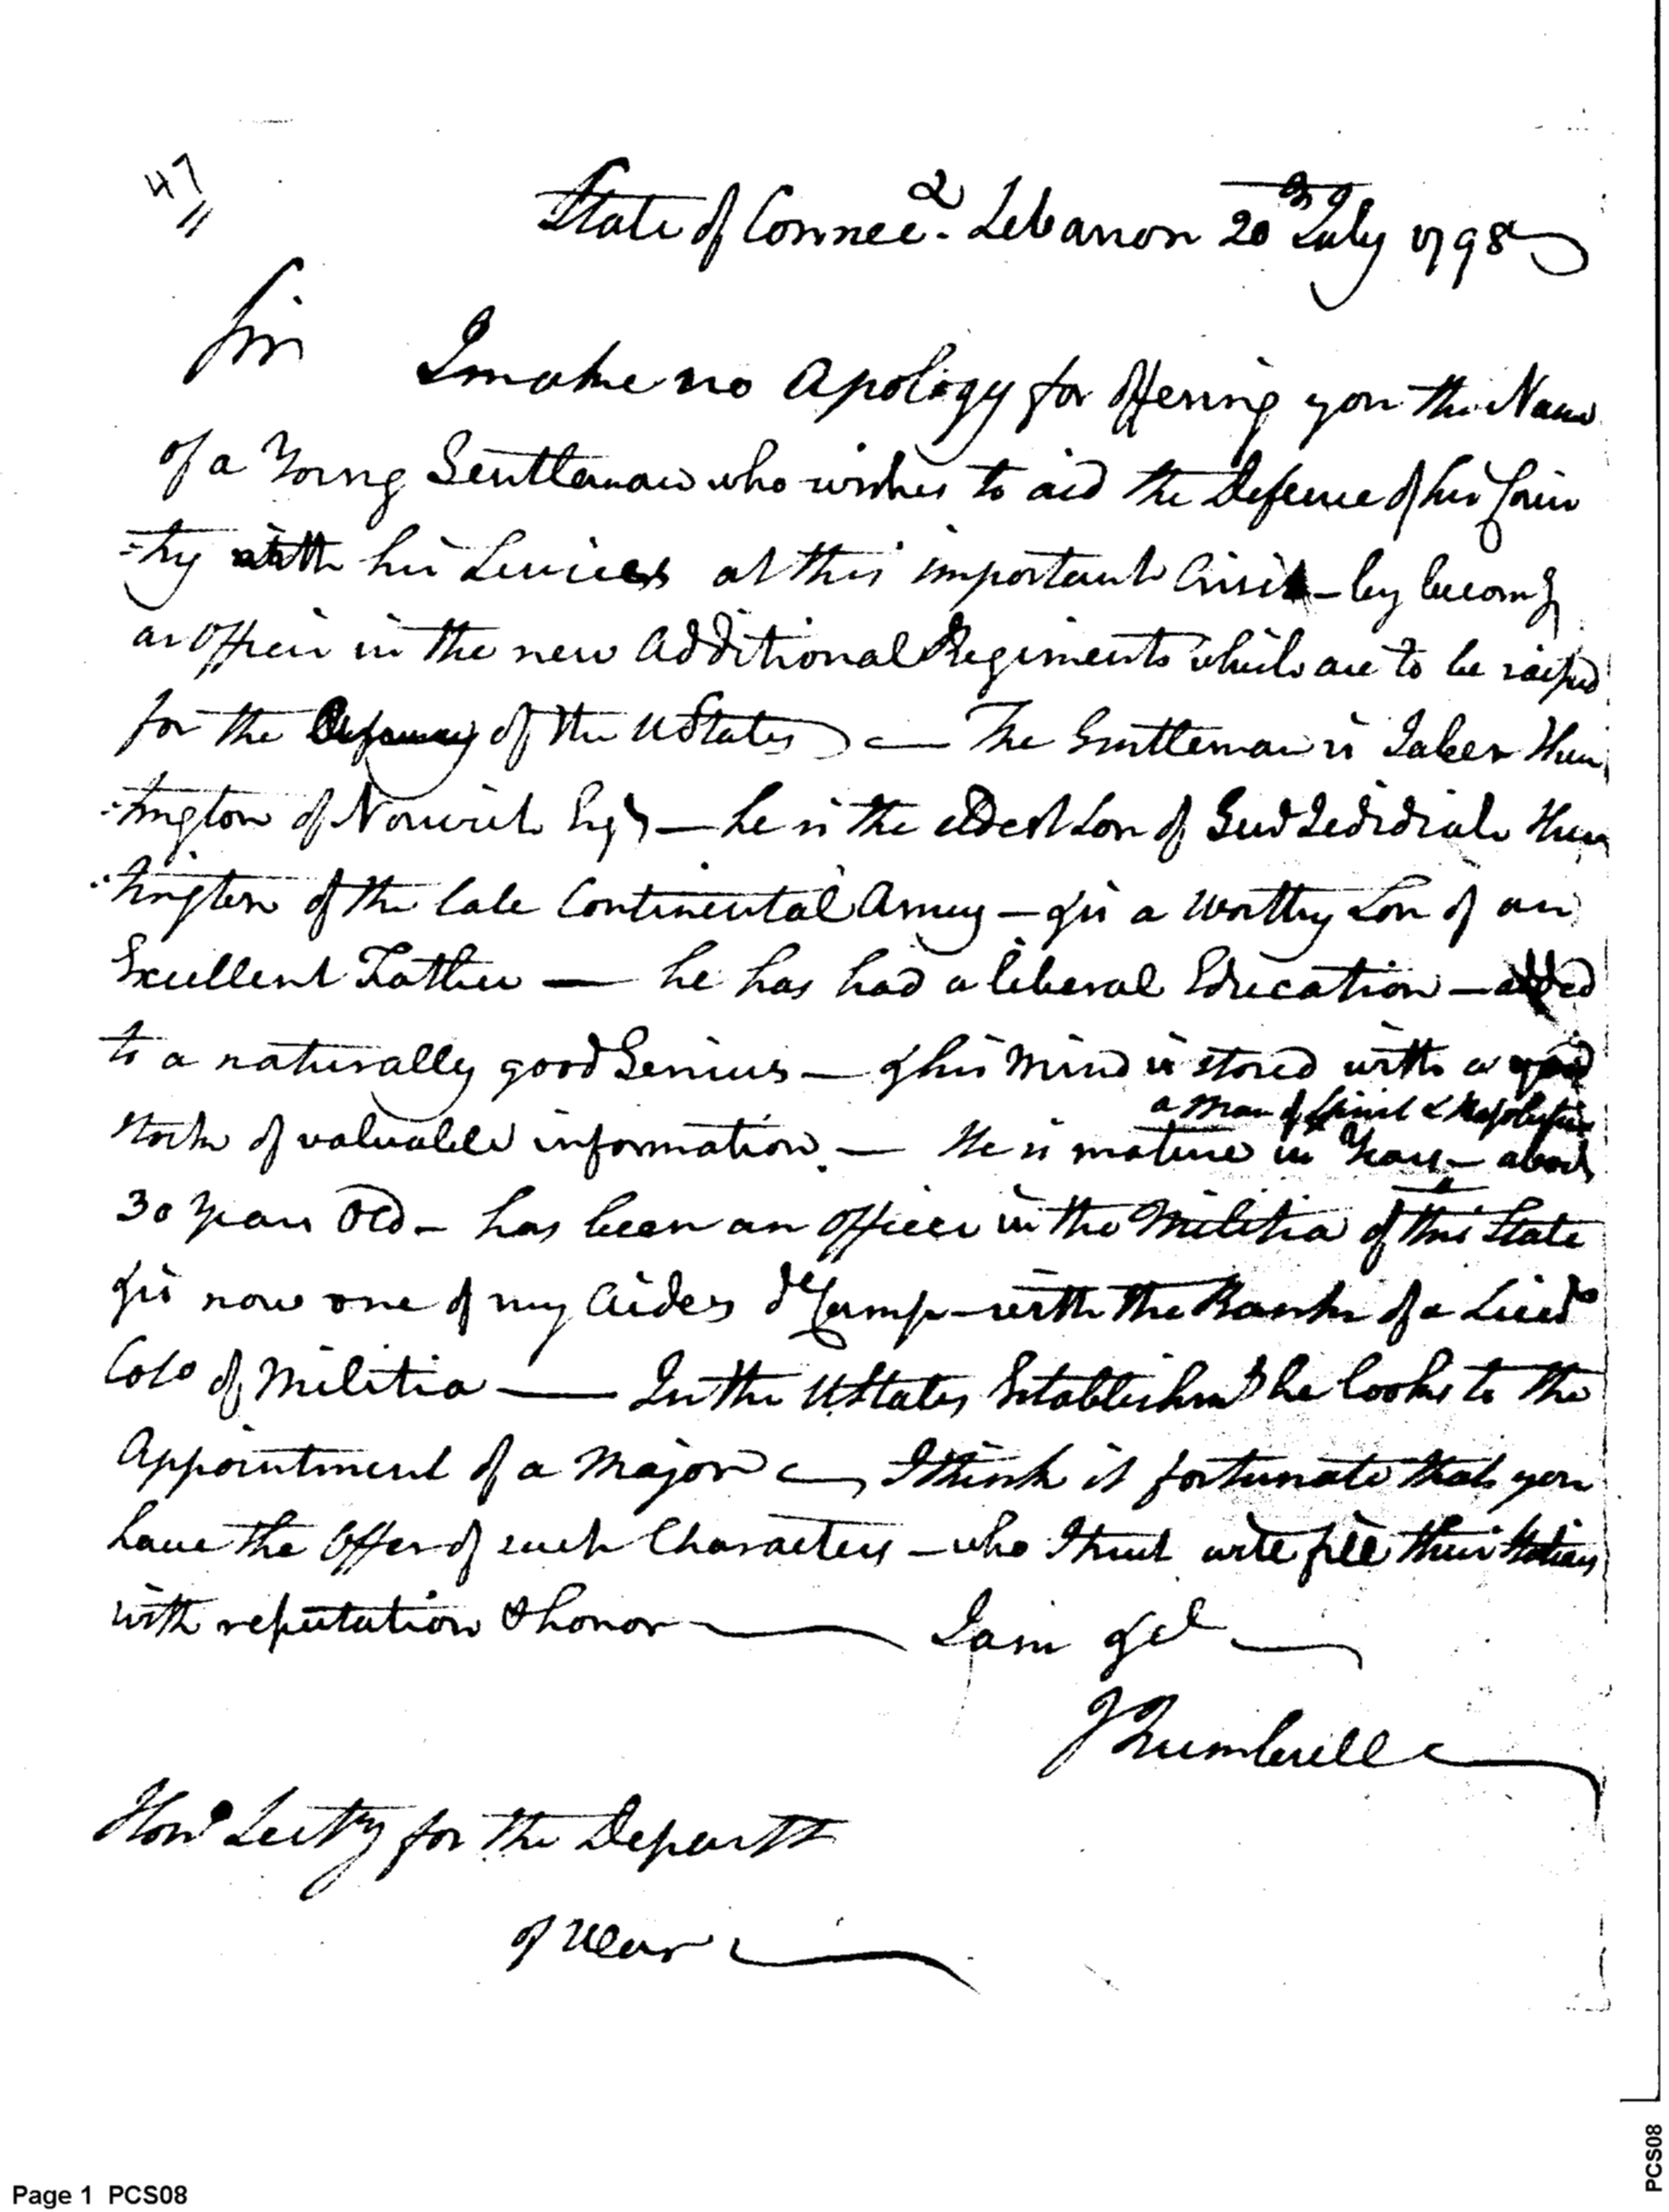 47
State of Connect. Lebanon 20th July 1798
Sir
I make no Apology for offering you the Name
of a Young Gentleman who wishes to aid the Defence of his Coun
=try with his Services at this important Crisis – by becomg
an Officer in the new Additional Regiments which are to be raised
for the of the UStates — The Gentleman is Jabez Hun
=tington of Norwich Esqr — he is the eldest Son of Genl Jedidiah Hun
=tington of the late Continental Army – & is a worthy Son of an
Excellent Father — he has had a liberal Education – added
to a naturally good Genius — & his Mind is stored with a good
a Man of Spirit & Resolution
stock of valuable information. — He is mature in Years – about
30 Years Old – has been an Officer in the Militia of this State
& is now one of my Aides de Camp – with the Rank of a Lieut
Colo of Militia — In the UStates Establishmt he looks to the
Appointment of a Major — I think it fortunate that you
have the Offer of such Characters – who I trust will fill their Stations
with reputation & honor — I am &c
JTrumbull
Hond Secrty for the Departt
of War
Page 1 PCS08
PCS08